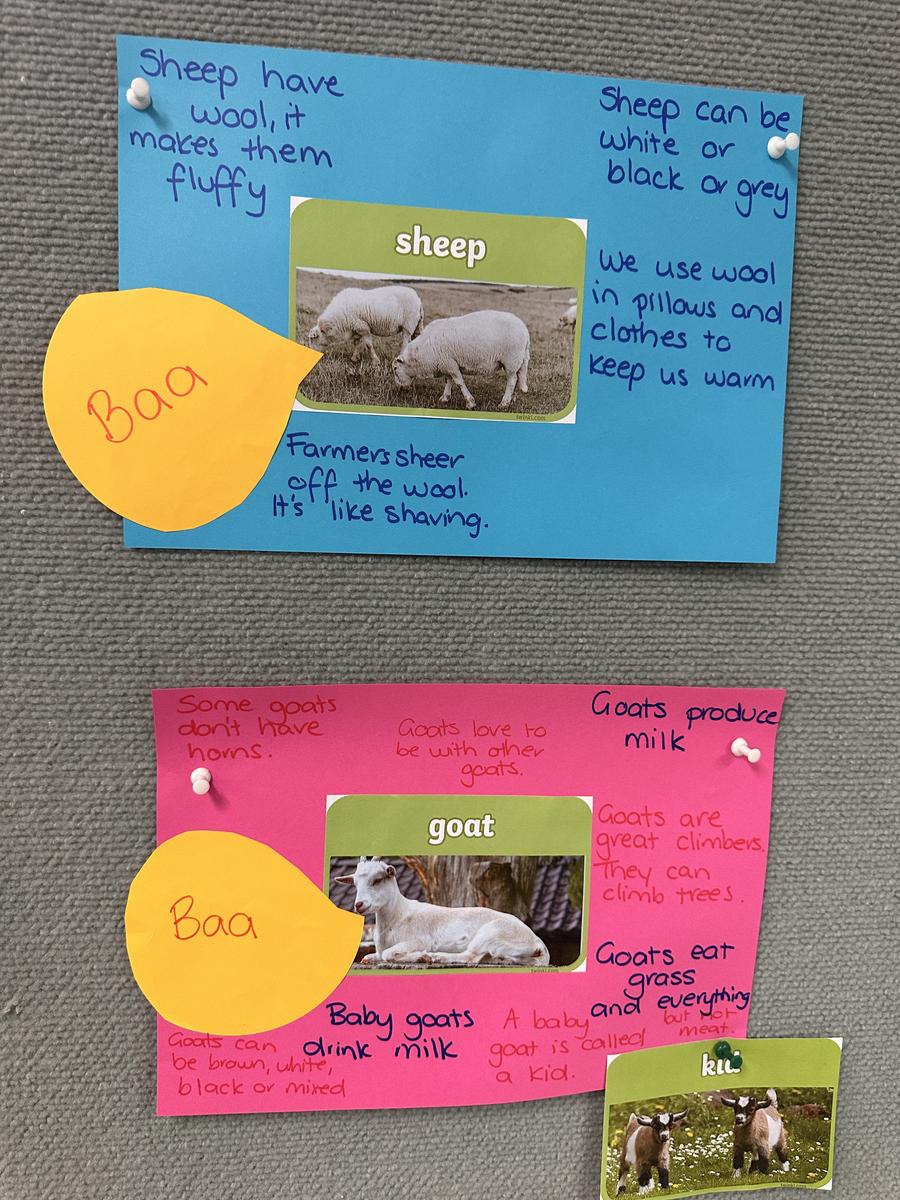 Sheep have
wool, it
makes them
fluffy
Sheep can be
white or
black or grey
sheep
We use wool
in pillows and
clothes to
keep us warm
twinkl.com
Baa
Farmers sheer
off the wool.
It's like shaving.
Some goats
don't have
horns.
Goats love to
be with other
goats.
Goats produce
milk
goat
Goats are
great climbers.
They can
climb trees.
twinkl.com
Baa
Goats eat
grass
and everything
but not
meat.
Baby goats
drink milk
A baby
goat is called
a kid.
Goats can
be brown, white,
black or mixed
kid
twinkl.com